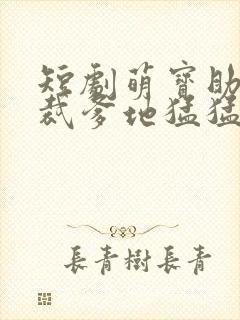 短劇萌寶助
裁爹地猛猛
長青樹長青